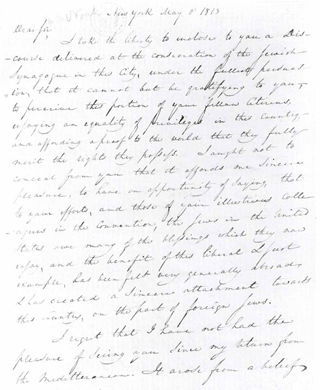 New York May 8 1818
Dear Sir,
I take the liberty to inclose to you a Dis-
course delivered at the consecration of the Jewish
Synagogue in this City, under the fullest persua
tion, that it cannot but be gratifying to you,
to perceive this portion of your fellow Citizens,
enjoying an equality of privileges in this Country,
and affording a proof to the world that they fully
merit the rights they possess. I ought not to
conceal from you that it affords me sincere
pleasure, to have an opportunity of saying, that
to your efforts, and those of your illustrious Colle-
agues in the Convention, the Jews in the United
States owe many of the blessings which they now
enjoy, and the benefit of this liberal & just
example, has been felt very generally abroad
& has created a sincere attachment towards
this Country, on the part of foreign Jews.
I regret that I have not had the
pleasure of seeing you since my return from
the Mediterranean. It arose from a belief